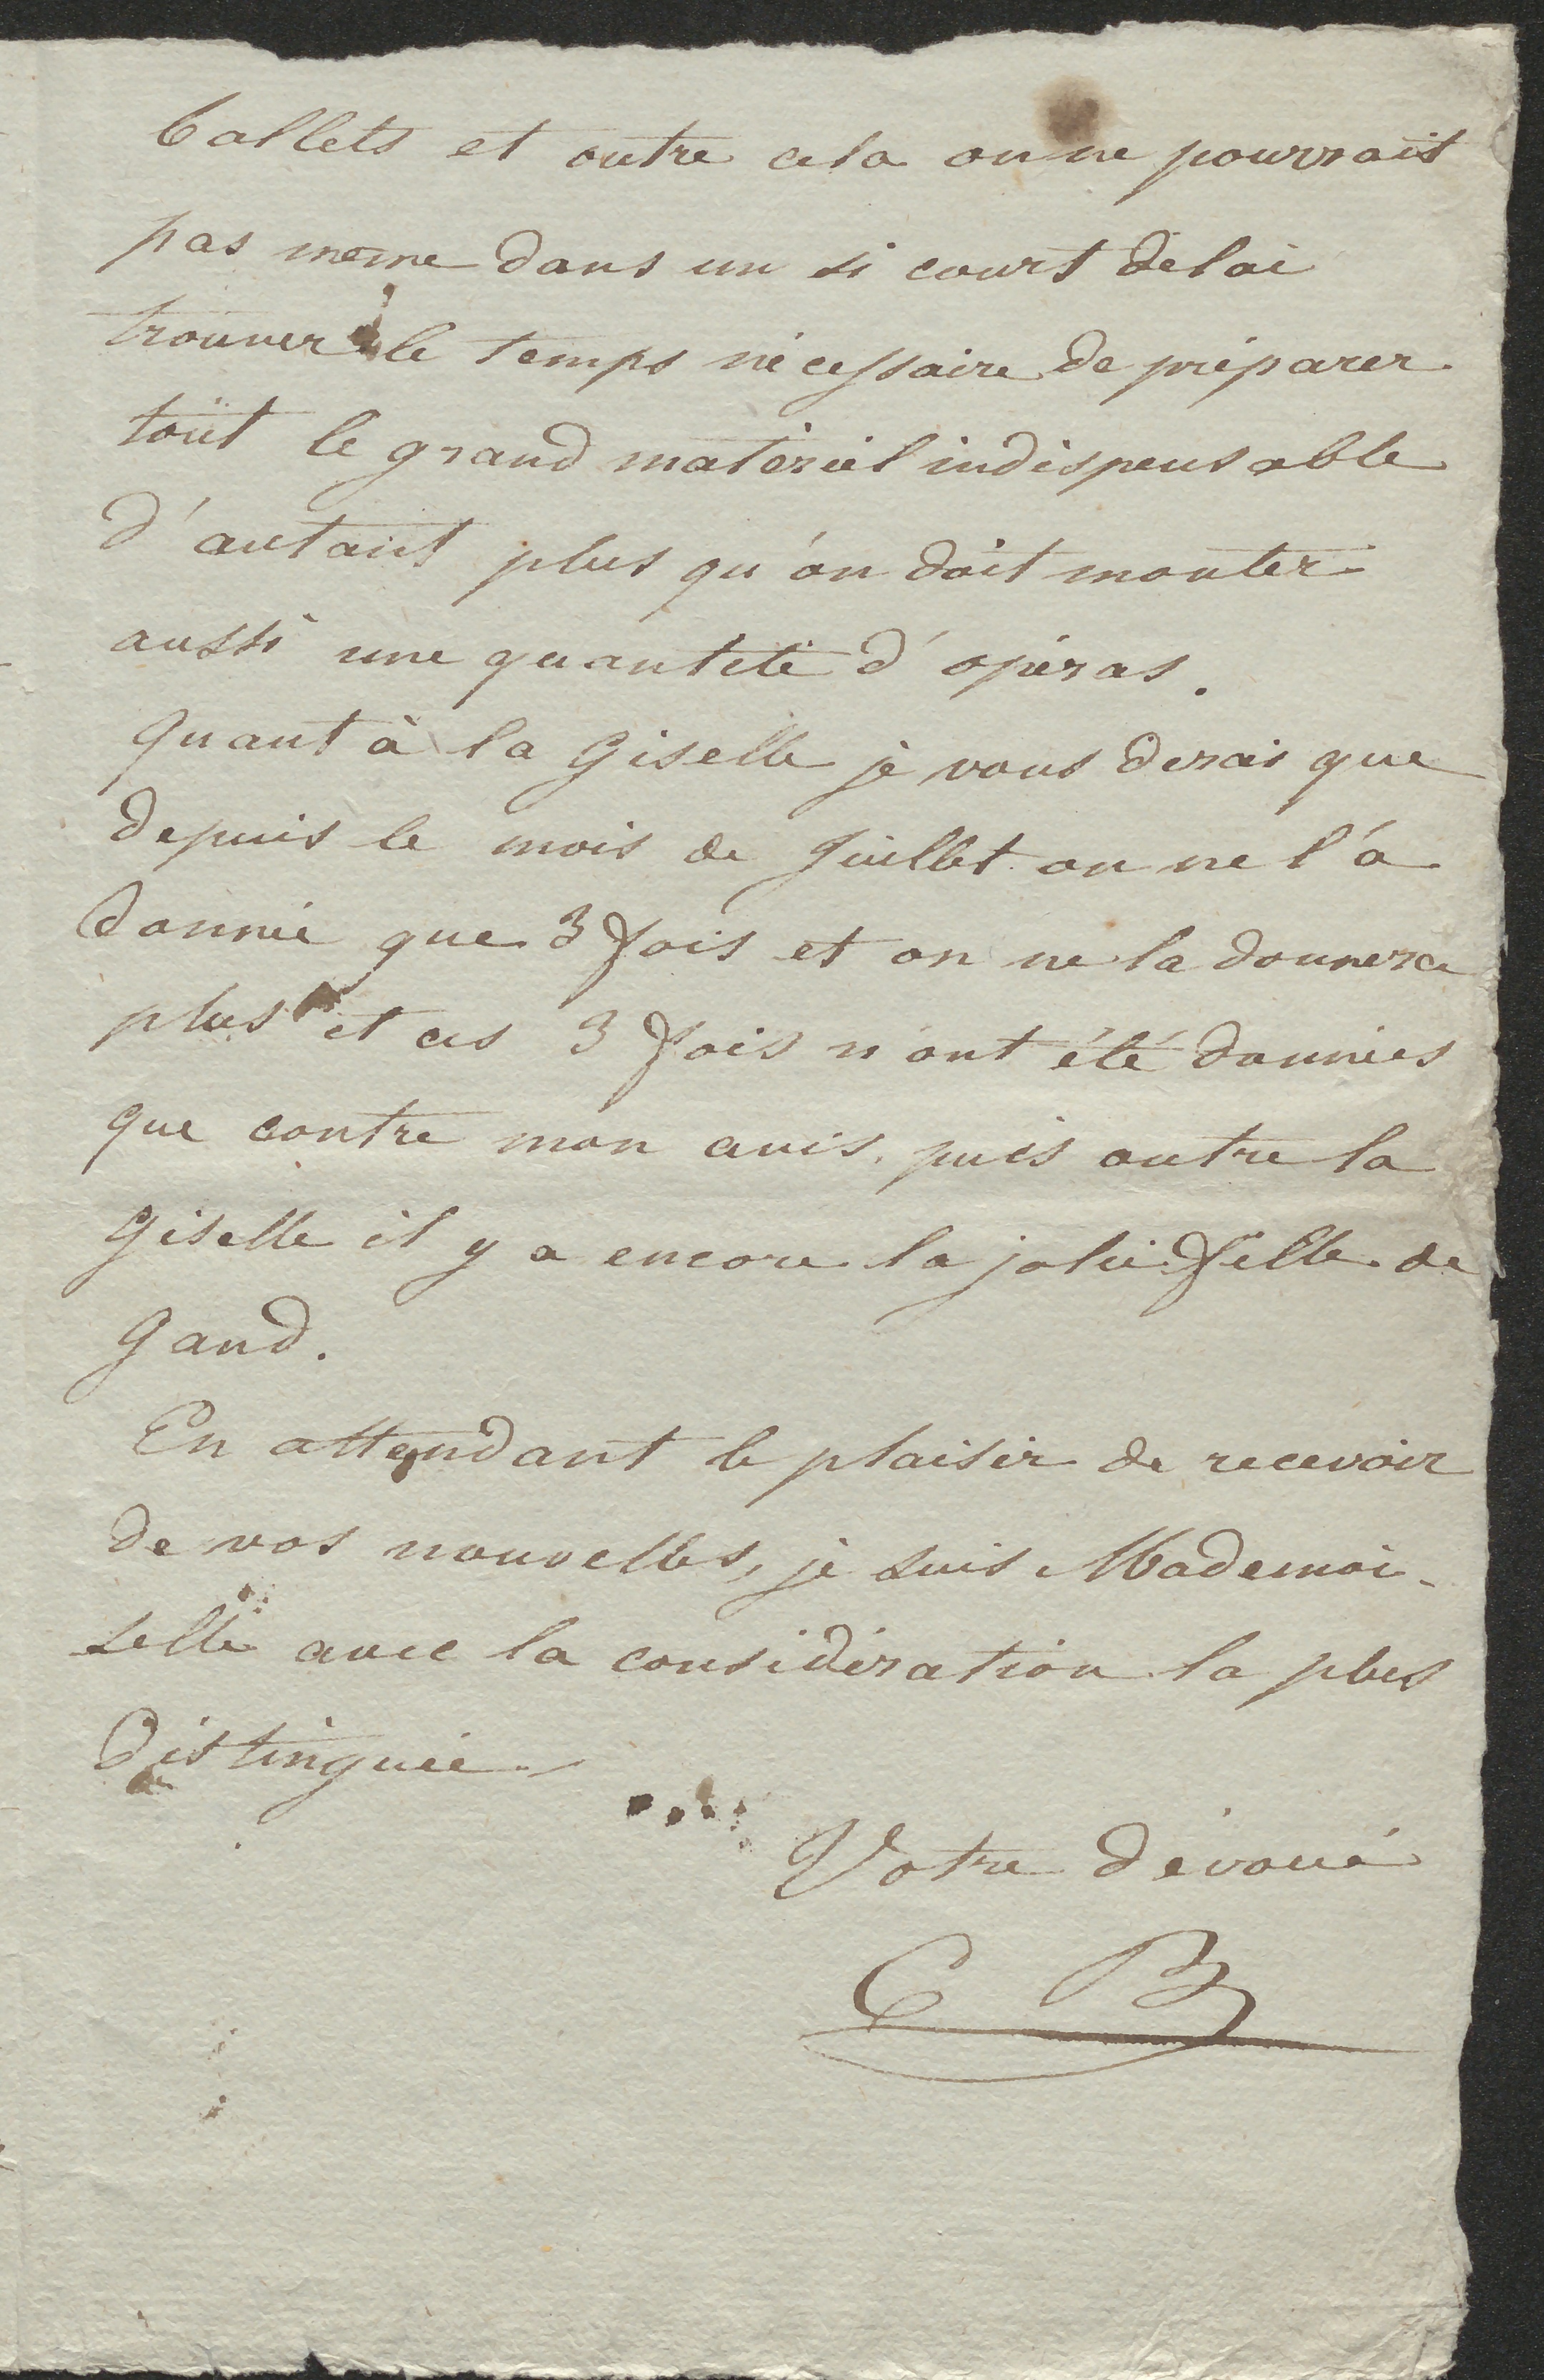 ballets et outre cela on ne pourrait
pas meme dans un si court délai
trouver le temps nécessaire de préparer
tout le grand matériel indispensable
d'autant plus qu'on doit monter
aussi une quantité d'opéras.
Quant à la Giselle je vous dirais que
depuis le mois de Juillet on ne l'a
donnée que 3 fois et on ne la donnera
plus et ces 3 fois n'ont été données
que contre mon avis. puis outre la
Giselle il y a encore la jolie fille de
Gand.
En attendant le plaisir de recevoir
de vos nouvelles, je suis Mademoi-
selle avec la considération la plus
distinguée.
Votre dévoué
C B